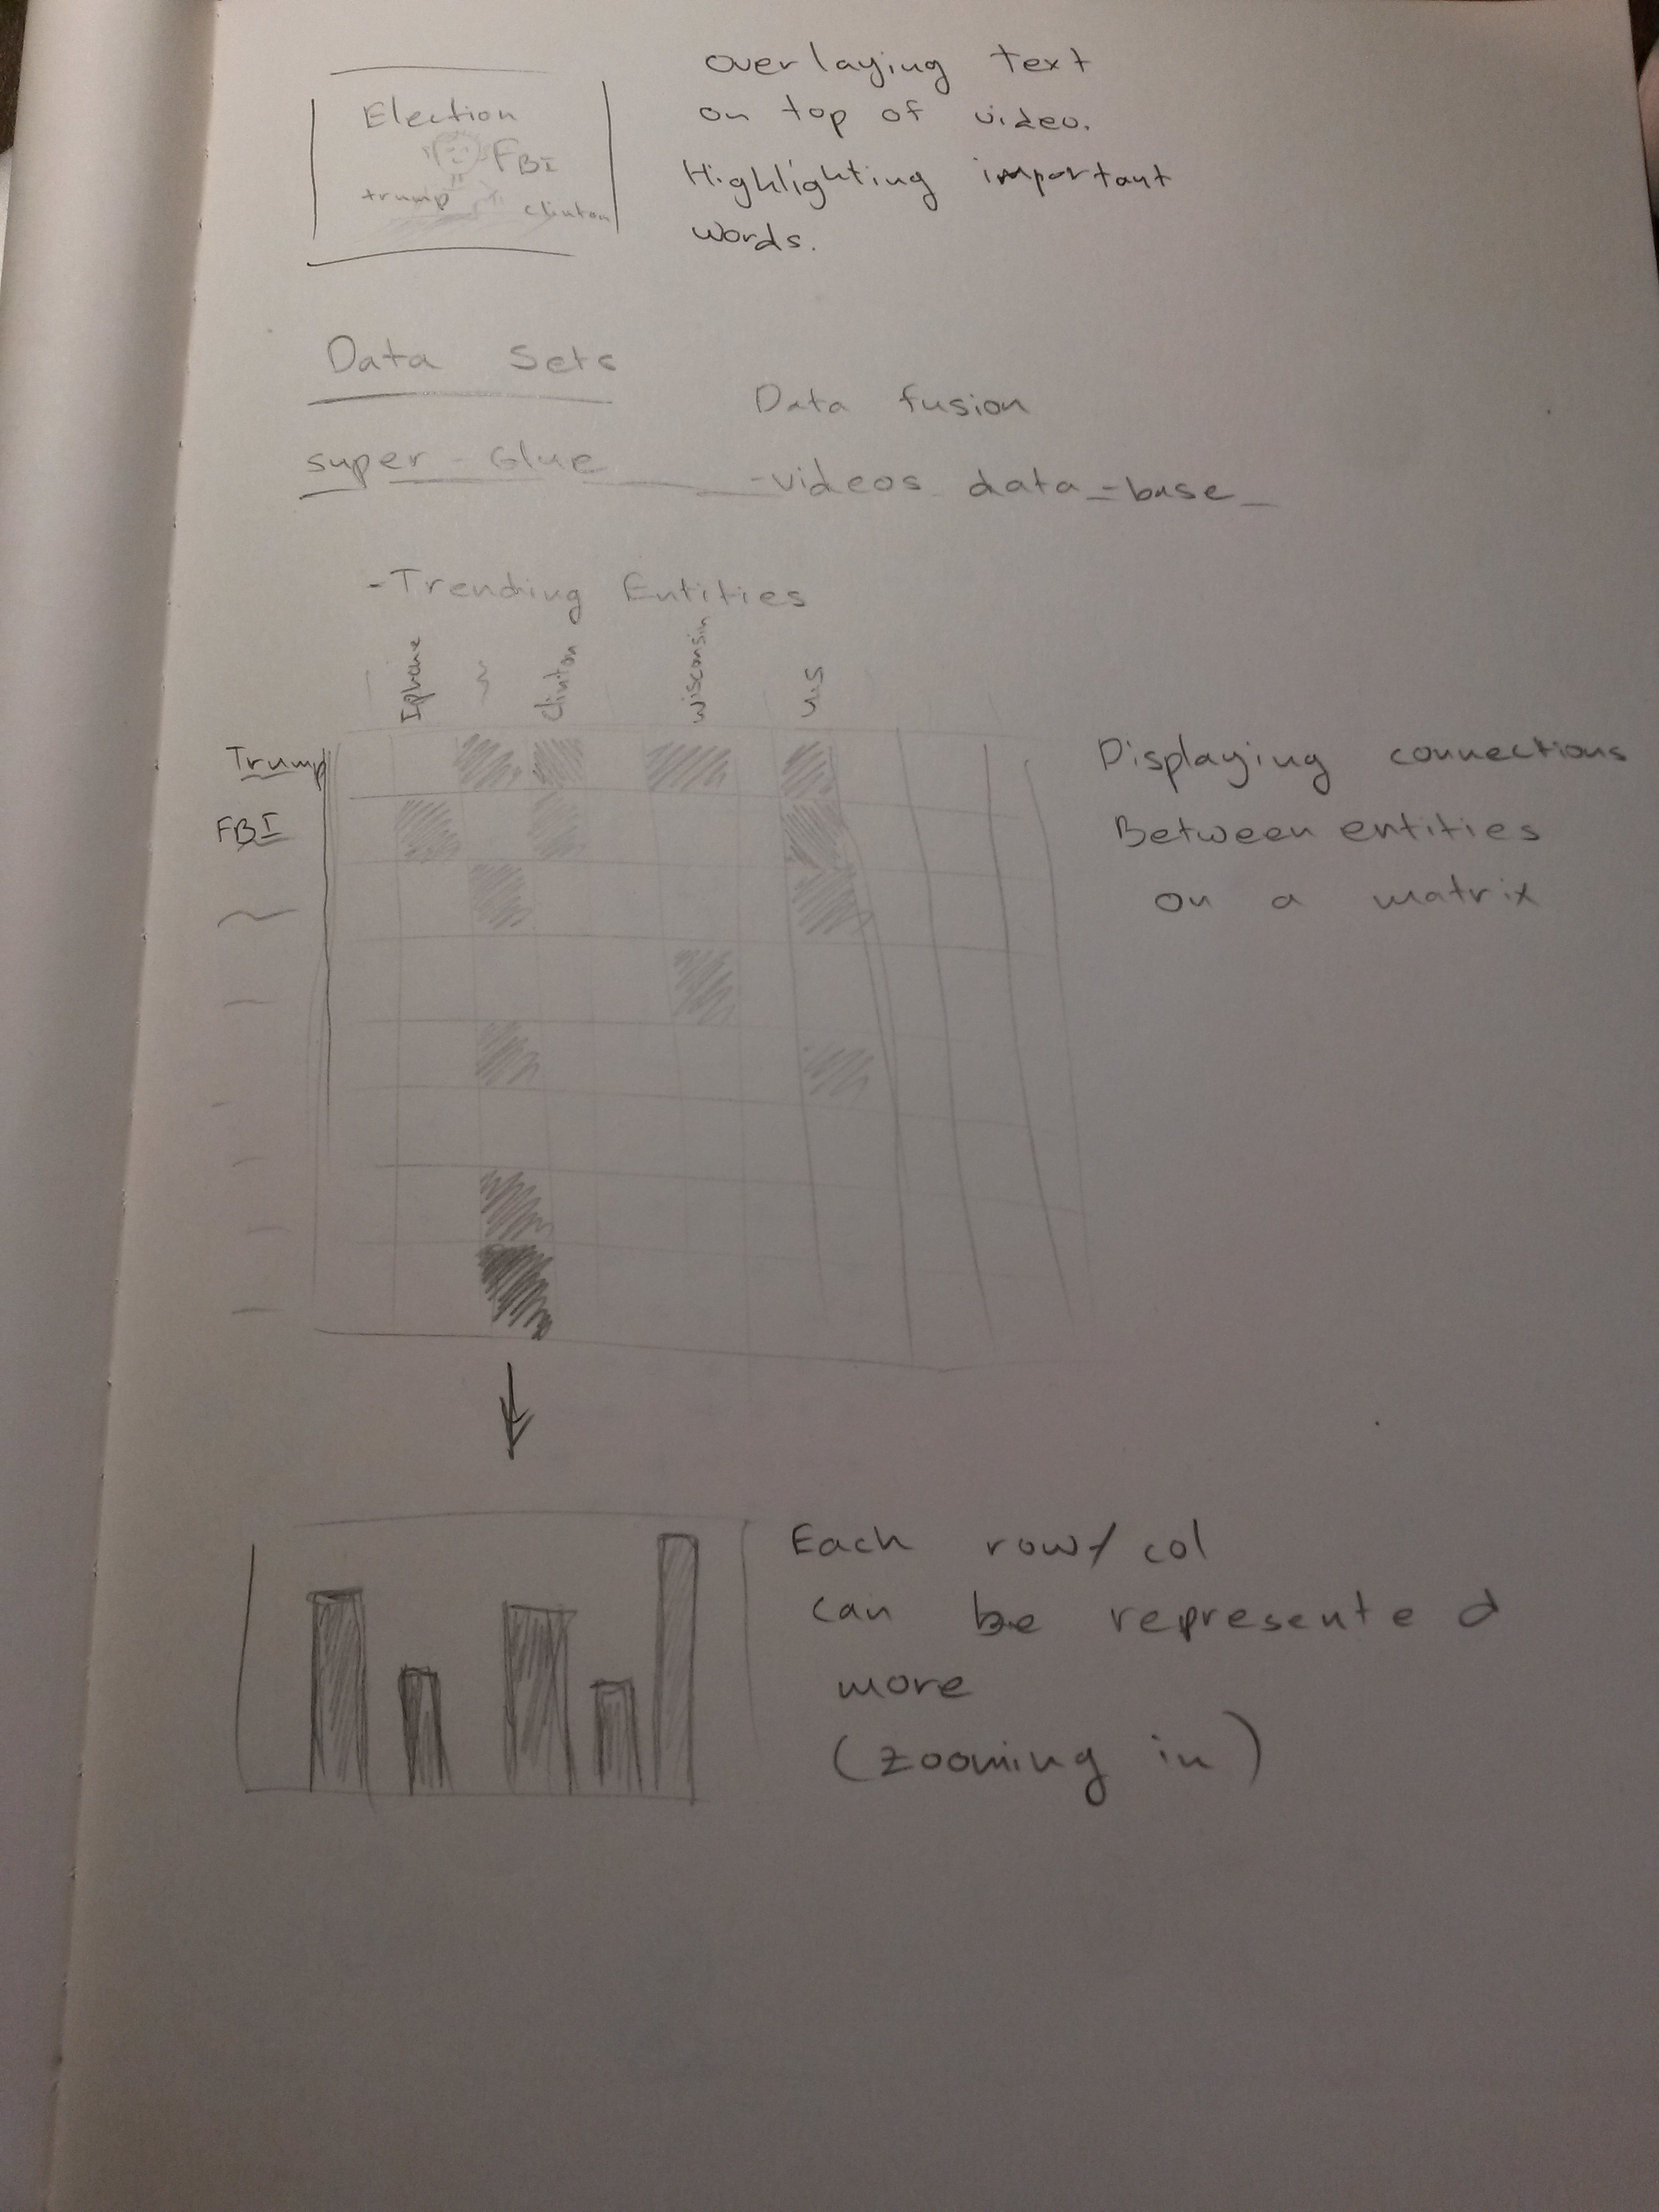 Election
FBI
trump
clinton
overlaying text
on top of video.
Highlighting important
words.
Data Sets
Data fusion
super-Glue
-videos data-base
-Trending Entities
Iphone
Clinton
Wisconsin
U.S
Trump
FBI
Displaying connections
Between entities
on a matrix
Each row/col
can be represented
more
(zooming in)